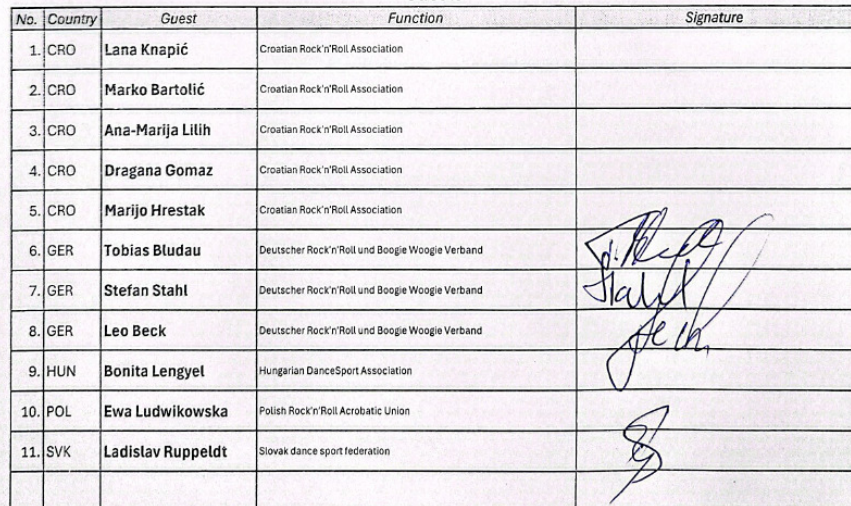 No. Country Guest Function Signature
1. CRO Lana Knapić Croatian Rock'n'Roll Association
2. CRO Marko Bartolić Croatian Rock'n'Roll Association
3. CRO Ana-Marija Lilih Croatian Rock'n'Roll Association
4. CRO Dragana Gomaz Croatian Rock'n'Roll Association
5. CRO Marijo Hrestak Croatian Rock'n'Roll Association
6. GER Tobias Bludau Deutscher Rock'n'Roll und Boogie Woogie Verband
7. GER Stefan Stahl Deutscher Rock'n'Roll und Boogie Woogie Verband Stahl
8. GER Leo Beck Deutscher Rock'n'Roll und Boogie Woogie Verband
9. HUN Bonita Lengyel Hungarian DanceSport Association
10. POL Ewa Ludwikowska Polish Rock'n'Roll Acrobatic Union
11. SVK Ladislav Ruppeldt Slovak dance sport federation